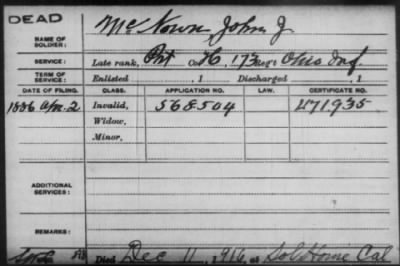 DEAD
NAME OF SOLDIER: McNown, John J.
SERVICE: Late rank, Pvt Co. H, 173 Reg't Ohio Inf.
TERM OF SERVICE: Enlisted , 1 Discharged , 1
DATE OF FILING. CLASS. APPLICATION NO. LAW. CERTIFICATE NO.
1886 Apr. 2 Invalid, 568504 471935
Widow,
Minor,
ADDITIONAL SERVICES:
REMARKS:
Died Dec 11, 1916, at Sol Home Cal